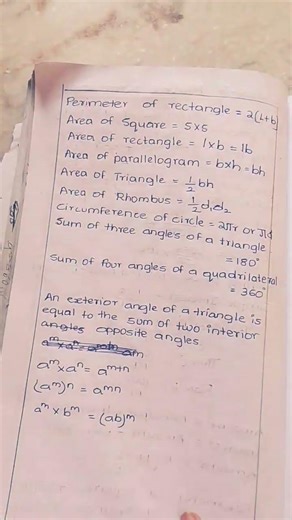 Perimeter of rectangle = 2(l+b)
Area of Square = S×S
Area of rectangle = l×b = lb
Area of parallelogram = b×h = bh
Area of Triangle = 1/2 bh
Area of Rhombus = 1/2 d₁d₂
Circumference of circle = 2πr or πd
Sum of three angles of a triangle
= 180°
Sum of four angles of a quadrilateral
= 360°
An exterior angle of a triangle is
equal to the sum of two interior
angles opposite angles.
aᵐ×aⁿ = aᵐ⁺ⁿ
(aᵐ)ⁿ = aᵐⁿ
aᵐ × bᵐ = (ab)ᵐ